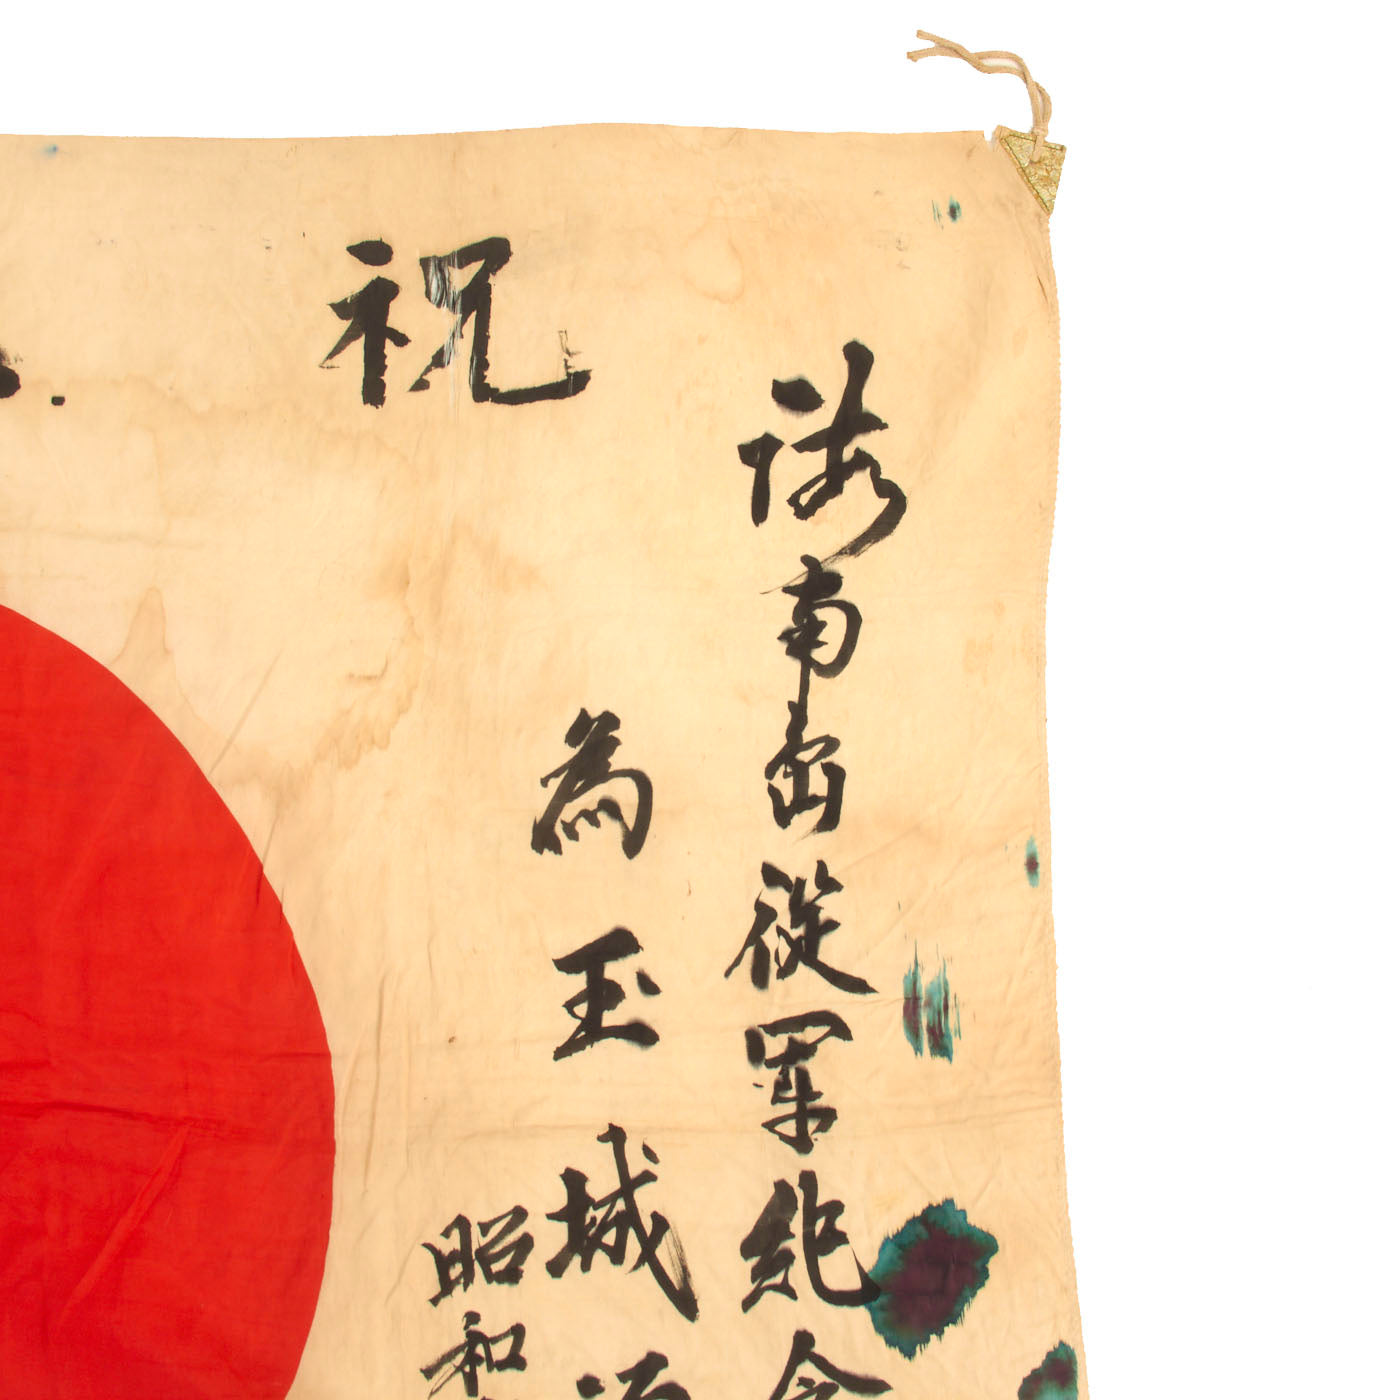 祝
南岳從軍紀念
為玉城
昭和